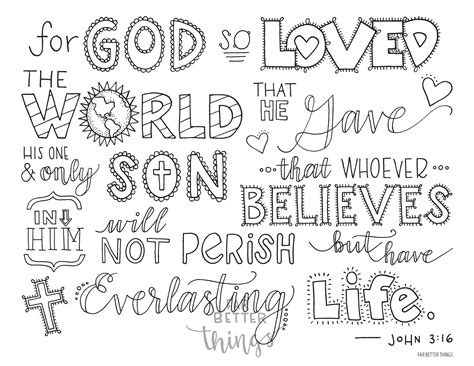 for GOD so LOVED
THE WORLD THAT HE Gave
HIS ONE & only SON that WHOEVER
IN HIM BELIEVES
will NOT PERISH but have
Everlasting Life.
BETTER things
— JOHN 3:16
FAR BETTER THINGS